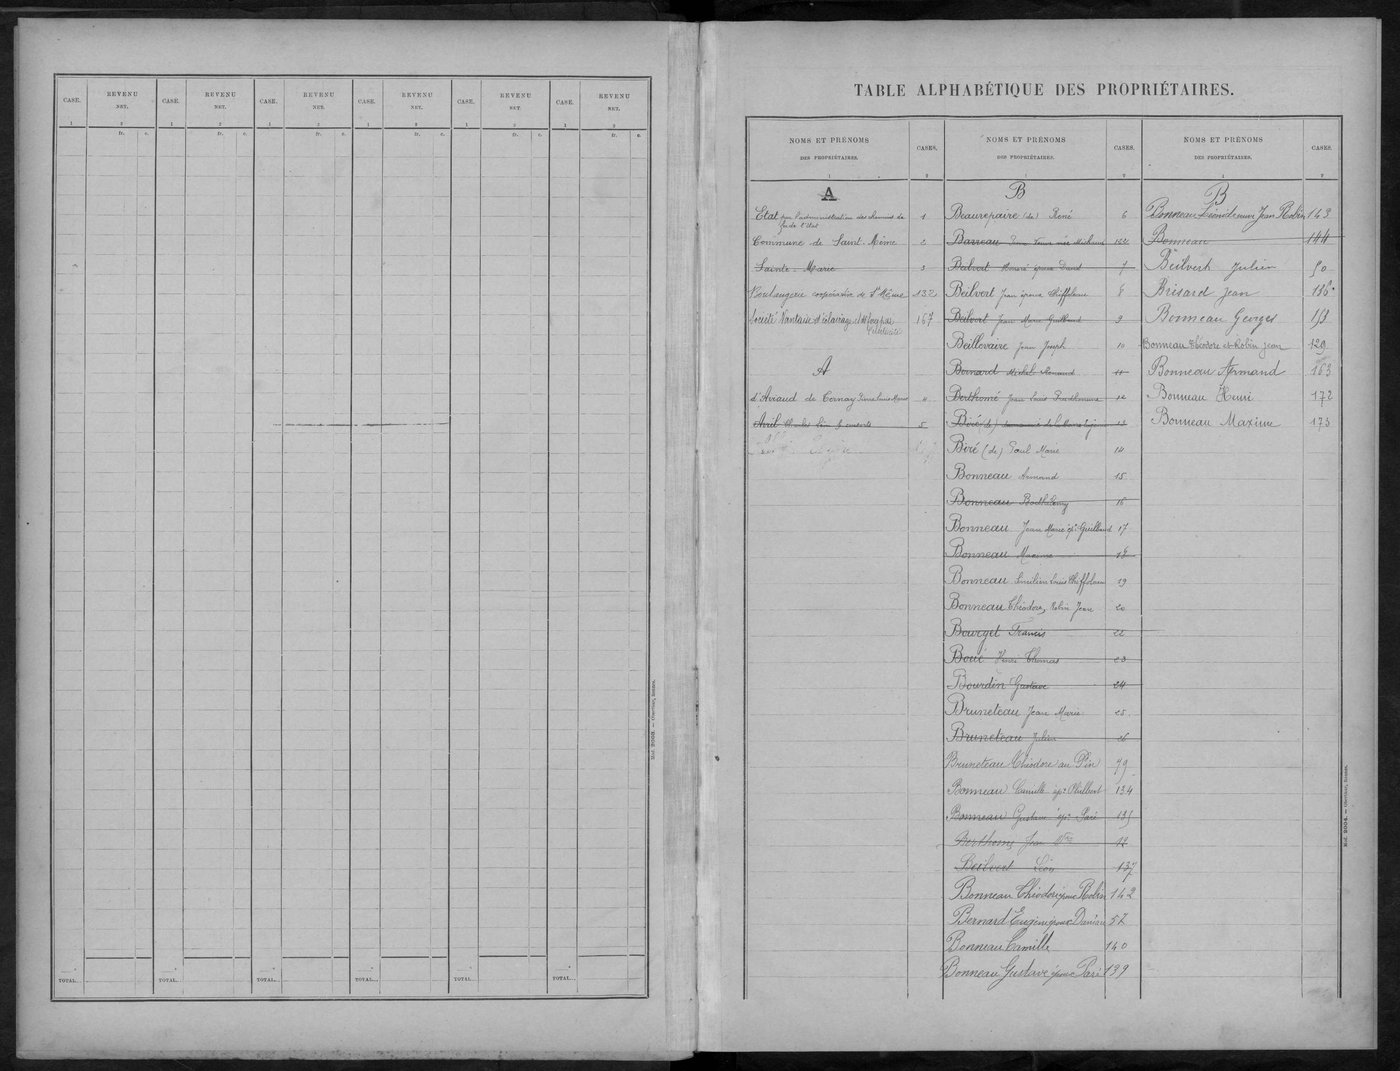 CASE. REVENU NET. CASE. REVENU NET. CASE. REVENU NET. CASE. REVENU NET. CASE. REVENU NET. CASE. REVENU NET.
1 2 1 2 1 2 1 2 1 2 1 2
fr. c. fr. c. fr. c. fr. c. fr. c. fr. c.
TOTAL.. TOTAL.. TOTAL.. TOTAL.. TOTAL.. TOTAL..
Mod. 2003. — Oberthur, Rennes.
TABLE ALPHABÉTIQUE DES PROPRIÉTAIRES.
NOMS ET PRÉNOMS DES PROPRIÉTAIRES. CASES.
1 2
A
Etat par l'administration des chemins de 1
fer de l'Etat
Commune de Saint-Même 2
Sainte-Marie 3
Boulangerie coopérative de St Même 132
Société Nantaise d'éclairage et de force par 167
l'électricité
A
d'Aviaud de Cernay 4
Avril Charles Léon 5
NOMS ET PRÉNOMS DES PROPRIÉTAIRES. CASES.
1 2
B
Beaurepaire (de) René 6
Barreau née Michaud 122
Beilvert épouse David 7
Beilvert Jean épouse Chiffoleau 8
Beilvert Jean Marie Guilbaud 9
Beillevaire Jean Joseph 10
Bernard Michel Renaud 11
Berthomé Jean Louis Prudhomme 12
Biré (de) 13
Biré (de) Paul Marie 14
Bonneau Armand 15
Bonneau Barthélemy 16
Bonneau Jean Marie ép. Guilbaud 17
Bonneau Maxime 18
Bonneau Louis Chiffoleau 19
Bonneau Théodore, Robin Jean 20
Bourget Francis 22
Boué Henri Thomas 23
Bourdin Gustave 24
Bruneteau Jean Marie 25
Bruneteau Julien 26
Bruneteau Théodore au Pin 79
Bonneau Camille ép. Philbert 134
Bonneau Gustave ép. Paré 135
Berthomé Jean 12
Beilvert Léon 137
Bonneau Théodore épouse Robin 142
Bernard Eugène épouse 52
Bonneau Camille 140
Bonneau Gustave épouse Paré 139
NOMS ET PRÉNOMS DES PROPRIÉTAIRES. CASES.
1 2
B
Bonneau Jean Robin 143
Bonneau 144
Beilvert Julien 50
Brisard Jean 136
Bonneau Georges 153
Bonneau Théodore et Robin Jean 129
Bonneau Armand 163
Bonneau Henri 172
Bonneau Maxime 173
Mod. 2004. — Oberthur, Rennes.